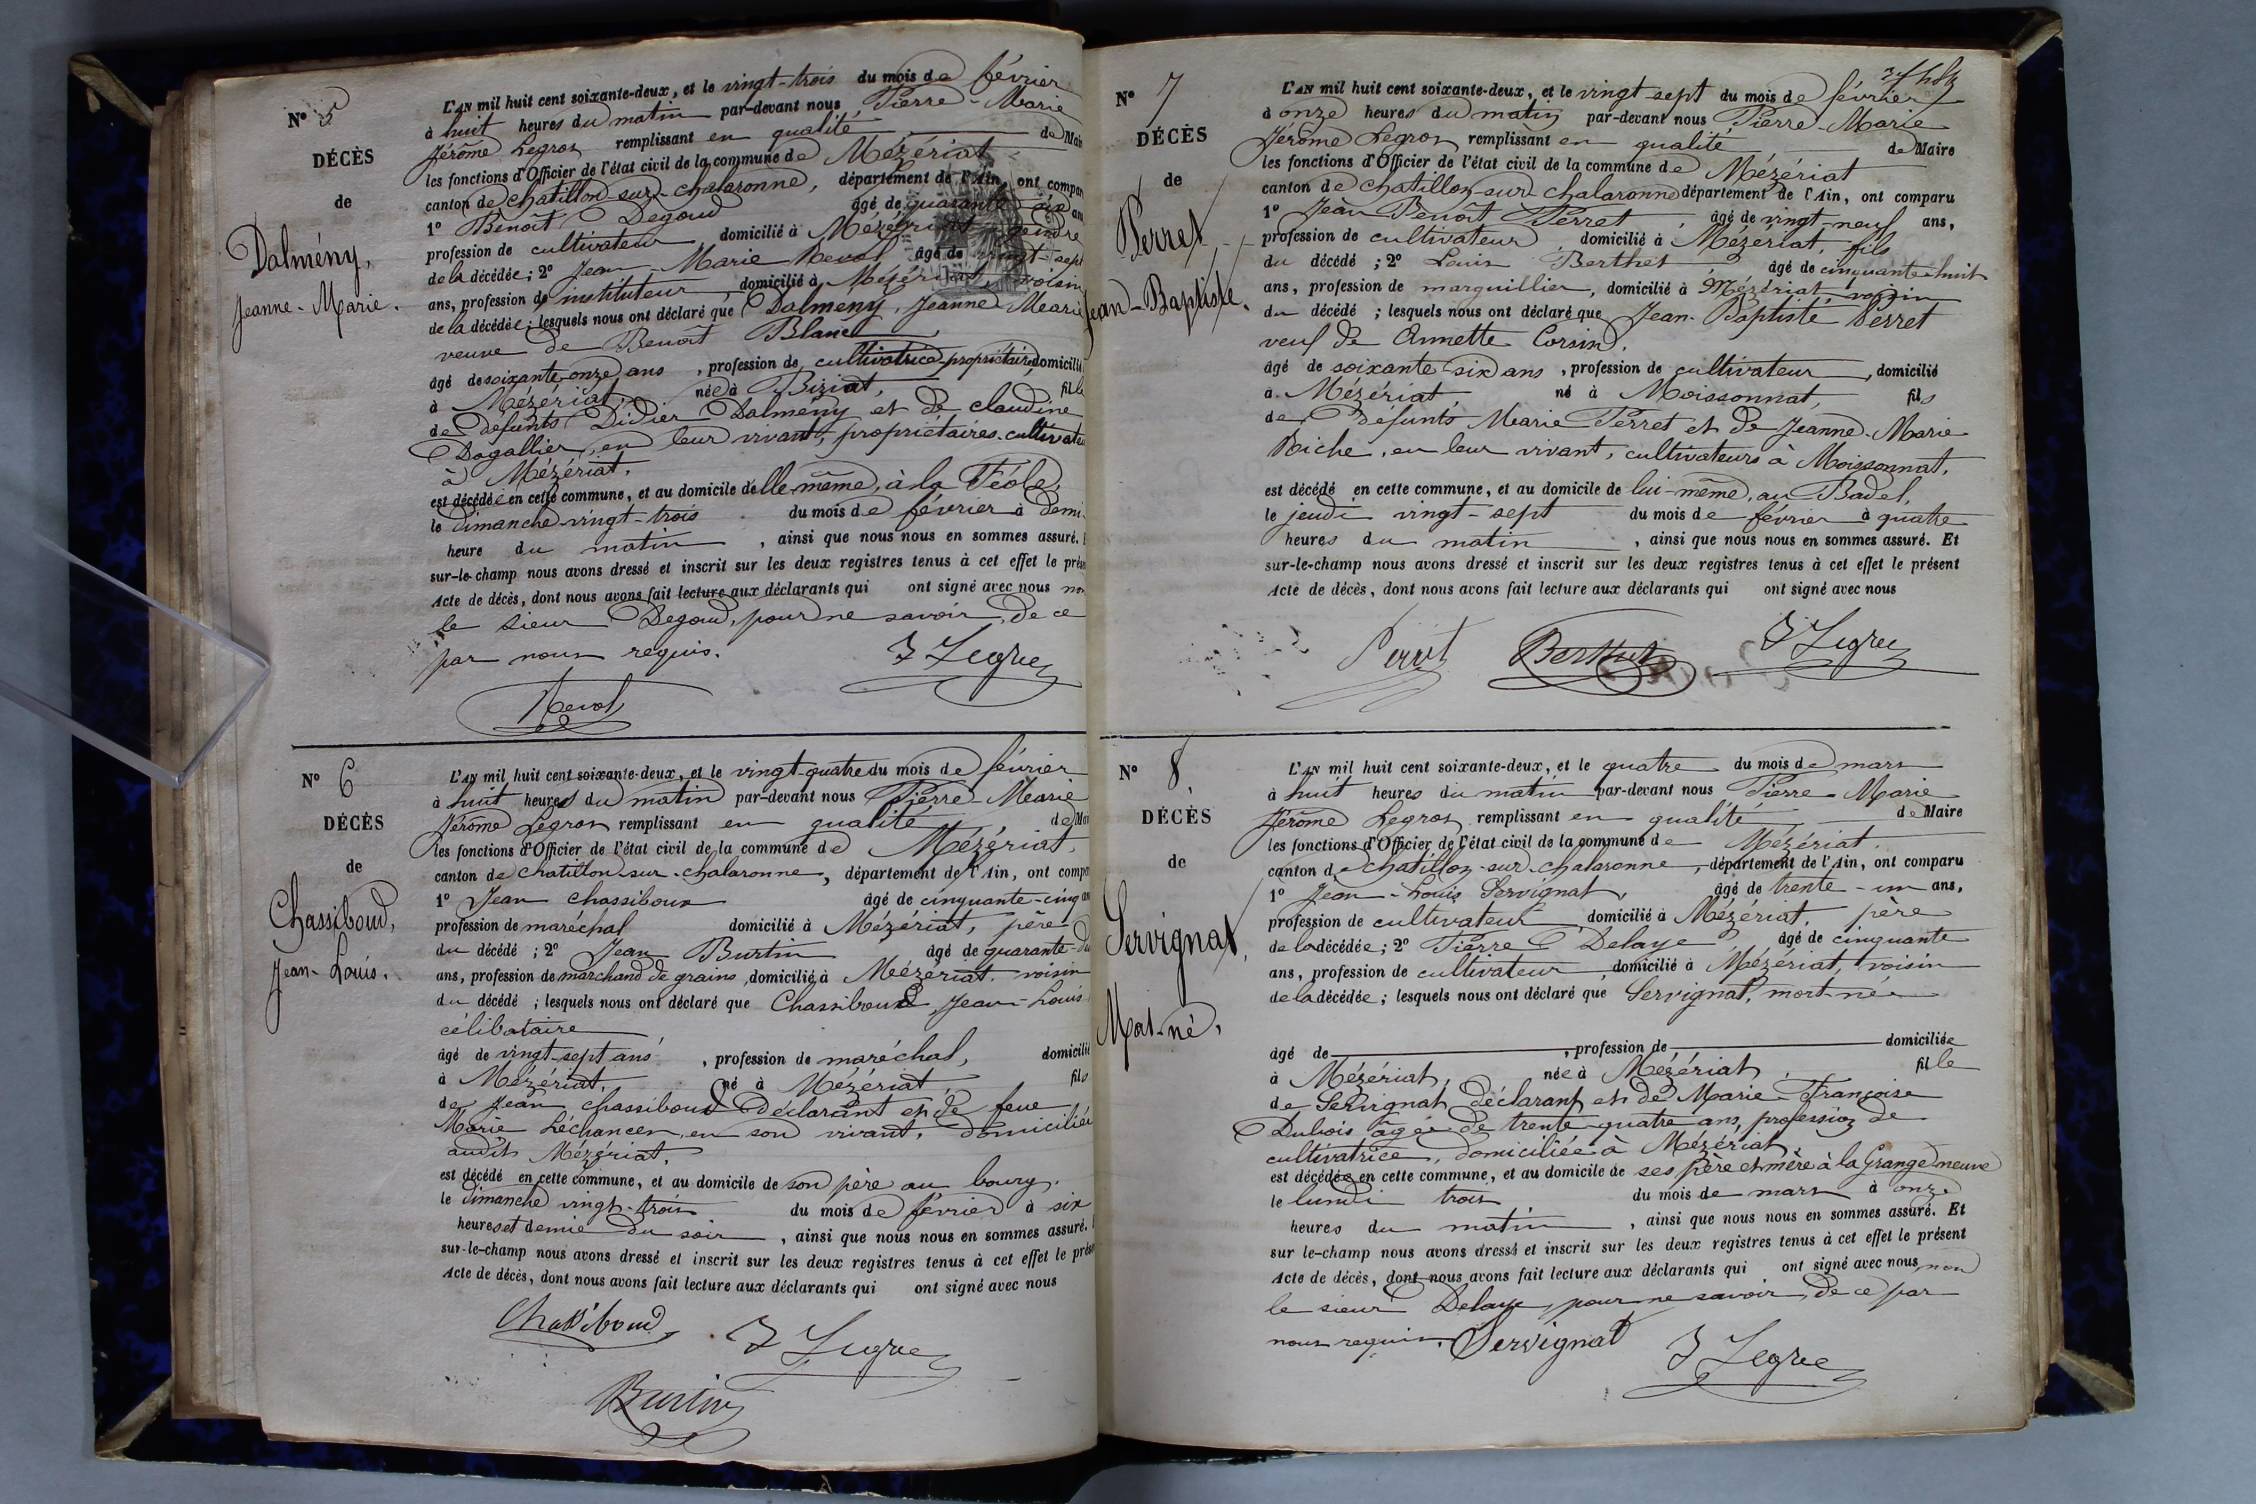 N° 5
DÉCÈS
de
Dalmény,
Jeanne-Marie.
L'AN mil huit cent soixante-deux, et le vingt-trois du mois de février
à huit heures du matin par-devant nous Pierre-Marie
Jérôme Legros remplissant en qualité de Mair
les fonctions d'Officier de l'état civil de la commune de Mézériat
canton de chatillon-sur-chalaronne, département de l'Ain, ont compar
1° Benoît Degoud âgé de quarante six ans
profession de cultivateur domicilié à Mézériat, gendre
de la décédée; 2° Jean Marie Revol âgé de vingt-sept
ans, profession de instituteur domicilié à Mézériat, voisin
de la décédée; lesquels nous ont déclaré que Dalmeny, Jeanne Marie
veuve de Benoît Blanc
âgé de soixante onze ans, profession de cultivatrice-propriétaire, domicilié
à Mézériat, née à Biziat, fille
de défunts Didier Dalmeny et de claudine
Dagallier, en leur vivant, propriétaires-cultivateu
à Mézériat.
est décédée en cette commune, et au domicile d'elle-même, à la Féole,
le dimanche vingt-trois du mois de février à demi-
heure du matin, ainsi que nous nous en sommes assuré.
sur-le-champ nous avons dressé et inscrit sur les deux registres tenus à cet effet le prése
Acte de décès, dont nous avons fait lecture aux déclarants qui ont signé avec nous non
le sieur Degoud, pour ne savoir, de ce
par nous requis.
J Legros
Revol
N° 6
DÉCÈS
de
Chassiboud,
Jean-Louis.
L'AN mil huit cent soixante-deux, et le vingt-quatre du mois de février
à huit heures du matin par-devant nous Pierre-Marie
Jérôme Legros remplissant en qualité de Mai
les fonctions d'Officier de l'état civil de la commune de Mézériat,
canton de chatillon-sur-chalaronne, département de l'Ain, ont compa
1° Jean chassiboux âgé de cinquante-cinq ans
profession de maréchal domicilié à Mézériat, père
du décédé; 2° Jean Burtin âgé de quarante-du
ans, profession de marchand de grains, domicilié à Mézériat, voisin
du décédé; lesquels nous ont déclaré que Chassiboud, Jean-Louis
célibataire
âgé de vingt-sept ans, profession de maréchal, domicilié
à Mézériat, né à Mézériat fils
de Jean chassiboud déclarant et de feue
Marie Léchancer, en son vivant, domiciliée
audit Mézériat.
est décédé en cette commune, et au domicile de son père au bourg.
le dimanche vingt-trois du mois de février à six
heures et demie du soir, ainsi que nous nous en sommes assuré.
sur-le-champ nous avons dressé et inscrit sur les deux registres tenus à cet effet le prése
Acte de décès, dont nous avons fait lecture aux déclarants qui ont signé avec nous
Chassiboud J Legros
Burtin
N° 7
DÉCÈS
de
Perret,
Jean-Baptiste.
L'AN mil huit cent soixante-deux, et le vingt-sept du mois de février
à onze heures du matin par-devant nous Pierre-Marie
Jérôme Legros remplissant en qualité de Maire
les fonctions d'Officier de l'état civil de la commune de Mézériat
canton de chatillon-sur-chalaronne département de l'Ain, ont comparu
1° Jean Benoît Perret, âgé de vingt-neuf ans,
profession de cultivateur domicilié à Mézériat, fils
du décédé; 2° Louis Berthet âgé de cinquante-huit
ans, profession de marguillier, domicilié à Mézériat, voisin
du décédé; lesquels nous ont déclaré que Jean-Baptiste Perret
veuf de Annette Corsin,
âgé de soixante six ans, profession de cultivateur, domicilié
à Mézériat né à Moissonnat, fils
de défunts Marie Perret et de Jeanne-Marie
Biche, en leur vivant, cultivateurs à Moissonnat,
est décédé en cette commune, et au domicile de lui-même, au Badel,
le jeudi vingt-sept du mois de février à quatre
heures du matin, ainsi que nous nous en sommes assuré. Et
sur-le-champ nous avons dressé et inscrit sur les deux registres tenus à cet effet le présent
Acte de décès, dont nous avons fait lecture aux déclarants qui ont signé avec nous
Perret Berthet J Legros
N° 8
DÉCÈS
de
Servignat,
Mort-né.
L'AN mil huit cent soixante-deux, et le quatre du mois de mars
à huit heures du matin par-devant nous Pierre-Marie
Jérôme Legros remplissant en qualité de Maire
les fonctions d'Officier de l'état civil de la commune de Mézériat.
canton de chatillon-sur-chalaronne, département de l'Ain, ont comparu
1° Jean-Louis Servignat, âgé de trente-un ans,
profession de cultivateur domicilié à Mézériat, père
de la décédée; 2° Pierre Delaye âgé de cinquante
ans, profession de cultivateur domicilié à Mézériat, voisin
de la décédée; lesquels nous ont déclaré que Servignat, mort-née
âgé de , profession de domiciliée
à Mézériat, née à Mézériat fille
de Servignat déclarant et de Marie-Françoise
Dubois âgée de trente-quatre ans, profession de
cultivatrice, domiciliée à Mézériat,
est décédée en cette commune, et au domicile de ses père et mère à la Grange neuve
le lundi trois du mois de mars à onze
heures du matin, ainsi que nous nous en sommes assuré. Et
sur le-champ nous avons dressé et inscrit sur les deux registres tenus à cet effet le présent
Acte de décès, dont nous avons fait lecture aux déclarants qui ont signé avec nous non
le sieur Delaye, pour ne savoir, de ce par
nous requis. Servignat J Legros